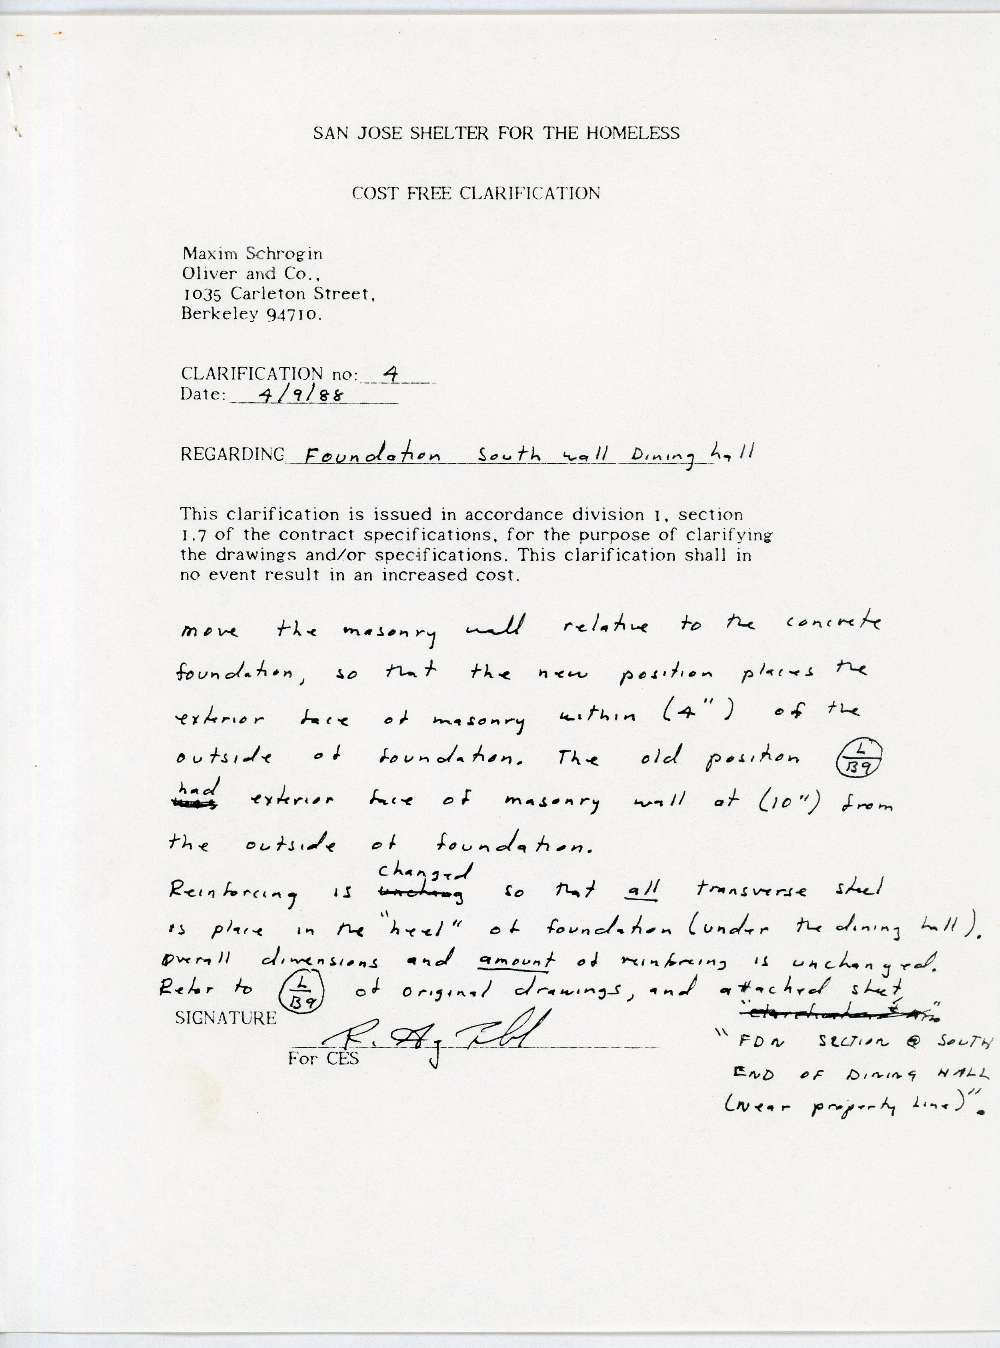 SAN JOSE SHELTER FOR THE HOMELESS
COST FREE CLARIFICATION
Maxim Schrogin
Oliver and Co.,
1035 Carleton Street,
Berkeley 94710.
CLARIFICATION no: 4
Date: 4/9/88
REGARDING Foundation South wall Dining hall
This clarification is issued in accordance division 1, section
1.7 of the contract specifications, for the purpose of clarifying
the drawings and/or specifications. This clarification shall in
no event result in an increased cost.
move the masonry wall relative to the concrete
foundation, so that the new position places the
exterior face of masonry within (4") of the
outside of foundation. The old position L/B9
had exterior face of masonry wall at (10") from
the outside of foundation.
changed
Reinforcing is unchang so that all transverse steel
is place in the "heel" of foundation (under the dining hall).
Overall dimensions and amount of reinforcing is unchanged.
Refer to L/B9 of original drawings, and attached sheet,
SIGNATURE
For CES
"FDN SECTION @ SOUTH
END OF DINING HALL
(Near property Line)".